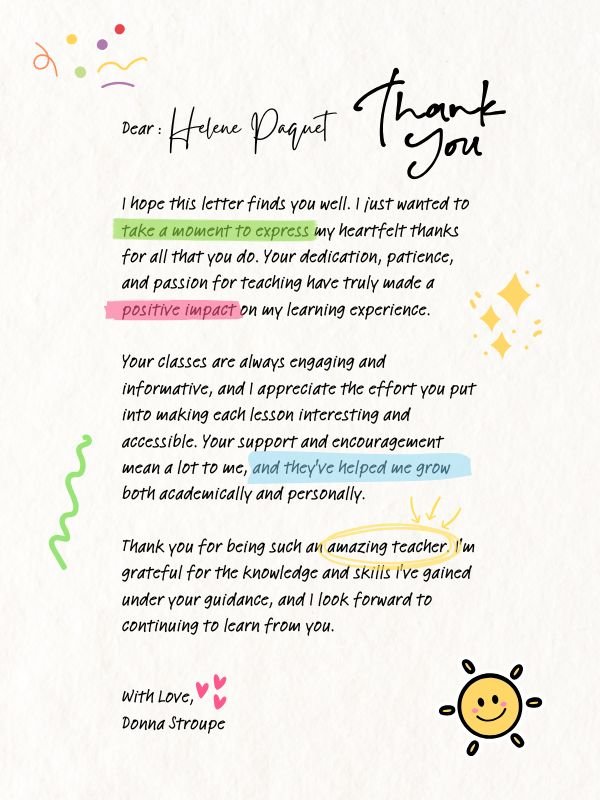 Thank
You
Dear : Helene Paquet
I hope this letter finds you well. I just wanted to
take a moment to express my heartfelt thanks
for all that you do. Your dedication, patience,
and passion for teaching have truly made a
positive impact on my learning experience.
Your classes are always engaging and
informative, and I appreciate the effort you put
into making each lesson interesting and
accessible. Your support and encouragement
mean a lot to me, and they've helped me grow
both academically and personally.
Thank you for being such an amazing teacher. I'm
grateful for the knowledge and skills I've gained
under your guidance, and I look forward to
continuing to learn from you.
With Love,
Donna Stroupe